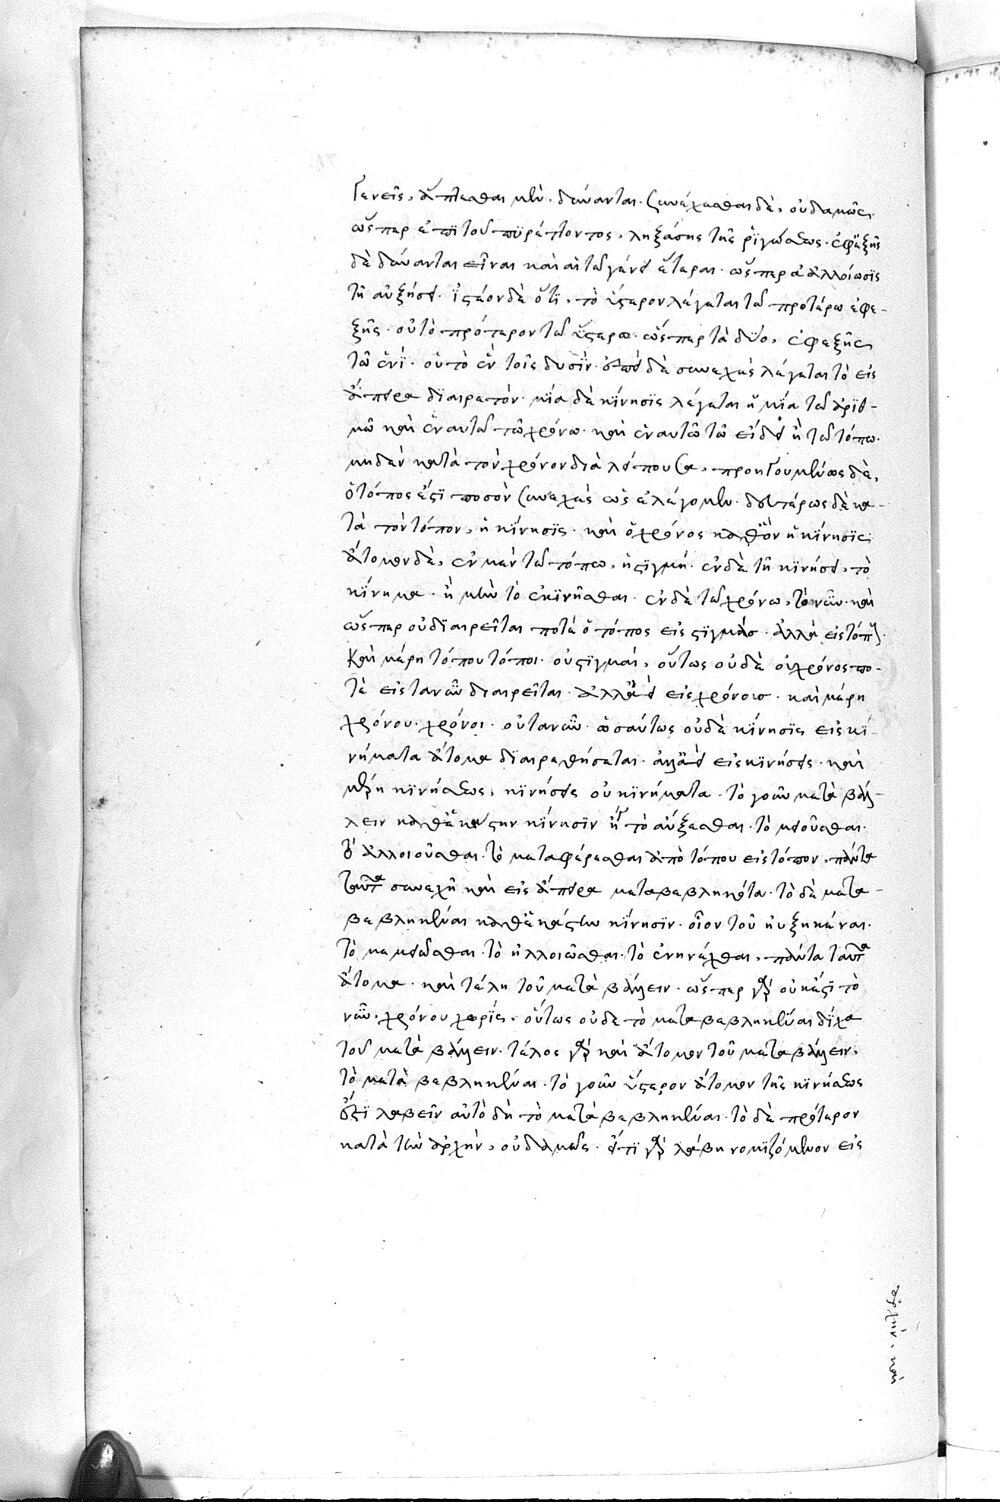 γενεῖς, ἅπτεσθαι μὲν δύνανται· συνέχεσθαι δὲ, οὐδαμῶς·
ὥσπερ ἐπὶ τοῦ πυρέττοντος, ληξάσης τῆς ῥιγώσεως· ἐφεξῆς
δὲ δύνανται εἶναι καὶ αἱ τῶ γένει ἕτεραι· ὥσπερ ἡ ἀλλοίωσις
τῆ αὐξήσει· ἰστέον δὲ ὅτι, τὸ ὕστερον λέγεται τῶ προτέρω ἐφε-
ξῆς· οὐ τὸ πρότερον τῶ ὑστέρω· ὥσπερ τὰ δύο, ἐφεξῆς
τῶ ἑνί· οὐ τὸ ἓν τοῖς δυσίν· ἐπεὶ δὲ συνεχὲς λέγεται τὸ εἰς
ἄπειρα διαιρετόν· μία δὲ κίνησις λέγεται ἡ μία τῶ ἀριθ-
μῶ καὶ ἐν αὐτῶ τῶ χρόνω· καὶ ἐν αὐτῶ τῶ εἴδει ἢ τῶ τόπω·
μηδὲν κατὰ τὸν χρόνον διαλείπουσα, προηγουμένως δὲ,
ὁ τόπος ἐστὶ ποσὸν συνεχὲς ὡς ἐλέγομεν· δευτέρως δὲ κα-
τὰ τὸν τόπον, ἡ κίνησις· καὶ ὁ χρόνος καθ' ὃν ἡ κίνησις·
ἄτομον δὲ, ἐν μὲν τῶ τόπω, ἡ στιγμή· ἐν δὲ τῆ κινήσει, τὸ
κίνημα· ἤγουν τὸ κεκινῆσθαι· ἐν δὲ τῶ χρόνω, τὸ νῦν· καὶ
ὥσπερ οὐ διαιρεῖται ποτὲ ὁ τόπος εἰς στιγμὰς· ἀλλὰ εἰς τόπους·
καὶ μέρη τόπου τόποι· οὐ στιγμαί, οὕτως οὐδὲ ὁ χρόνος πο-
τὲ εἰς τὰ νῦν διαιρεῖται· ἀλλὰ εἰς χρόνους· καὶ μέρη
χρόνου, χρόνοι· οὐ τὰ νῦν· ὡσαύτως οὐδὲ κίνησις εἰς κι-
νήματα ἄτομα διαιρεθήσεται· ἀλλὰ εἰς κινήσεις· καὶ
μέρη κινήσεως, κινήσεις οὐ κινήματα· τὸ γοῦν μεταβάλ-
λειν καθ' ἑκάστην κίνησιν ἤτοι τὸ αὔξεσθαι· τὸ μειοῦσθαι·
τὸ ἀλλοιοῦσθαι· τὸ μεταφέρεσθαι ἀπὸ τόπου εἰς τόπον, πάντα
ταῦτα συνεχῆ καὶ εἰς ἄπειρα μεταβεβληκότα· τὸ δὲ μετα-
βεβληκέναι καθ' ἑκάστην κίνησιν· οἷον τοῦ ηὐξηκέναι·
τὸ μεμειῶσθαι· τὸ ἠλλοιῶσθαι· τὸ ἐνηνέχθαι, πάντα ταῦτα
ἄτομα· καὶ τέλη τοῦ μεταβάλλειν· ὥσπερ γὰρ οὐκ ἔστι τὸ
νῦν, χρόνου χωρίς, οὕτως οὐδὲ τὸ μεταβεβληκέναι δίχα
τοῦ μεταβάλλειν· τέλος γὰρ καὶ ἄτομον τοῦ μεταβάλλειν,
τὸ μεταβεβληκέναι· τὸ γοῦν ὕστερον ἄτομον τῆς κινήσεως
ἔστι λαβεῖν αὐτὸ δὴ τὸ μεταβεβληκέναι· τὸ δὲ πρότερον
κατὰ τὴν ἀρχὴν, οὐδαμῶς· ὅτι γὰρ λάβη νομιζόμενον εἰς